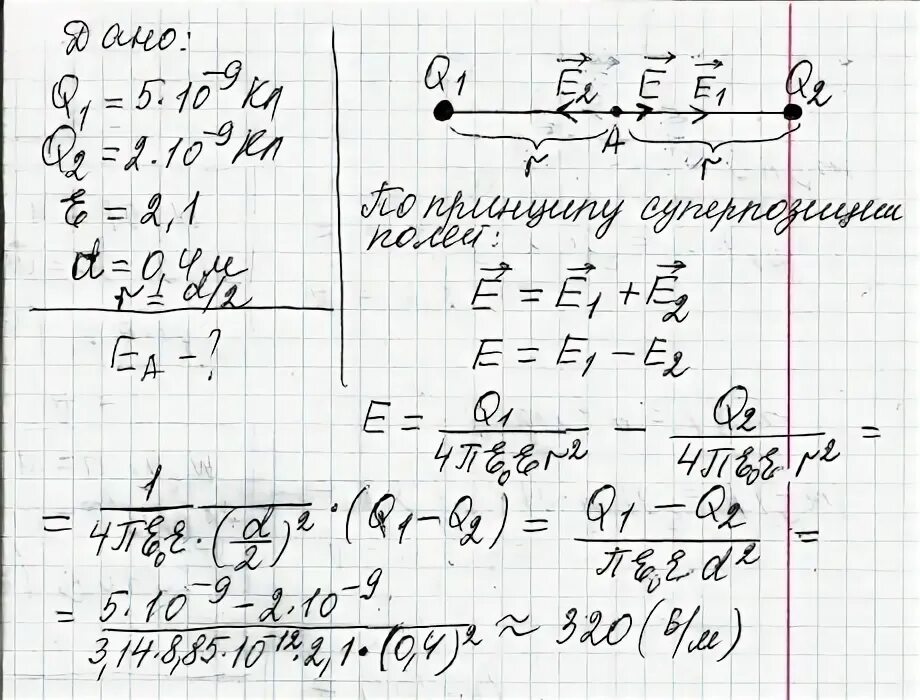 Дано:
Q₁ = 5·10⁻⁹ Кл
Q₂ = 2·10⁻⁹ Кл
ε = 2,1
d = 0,4 м
r = d/2
E_A - ?
Q₁ E⃗₂ E⃗ E⃗₁ Q₂
A
r r
По принципу суперпозиции
полей:
E⃗ = E⃗₁ + E⃗₂
E = E₁ - E₂
E = Q₁/(4πε₀εr²) - Q₂/(4πε₀εr²) =
= 1/(4πε₀ε·(d/2)²)·(Q₁ - Q₂) = (Q₁ - Q₂)/(πε₀εd²) =
= (5·10⁻⁹ - 2·10⁻⁹)/(3,14·8,85·10⁻¹²·2,1·(0,4)²) ≈ 320 (В/м)